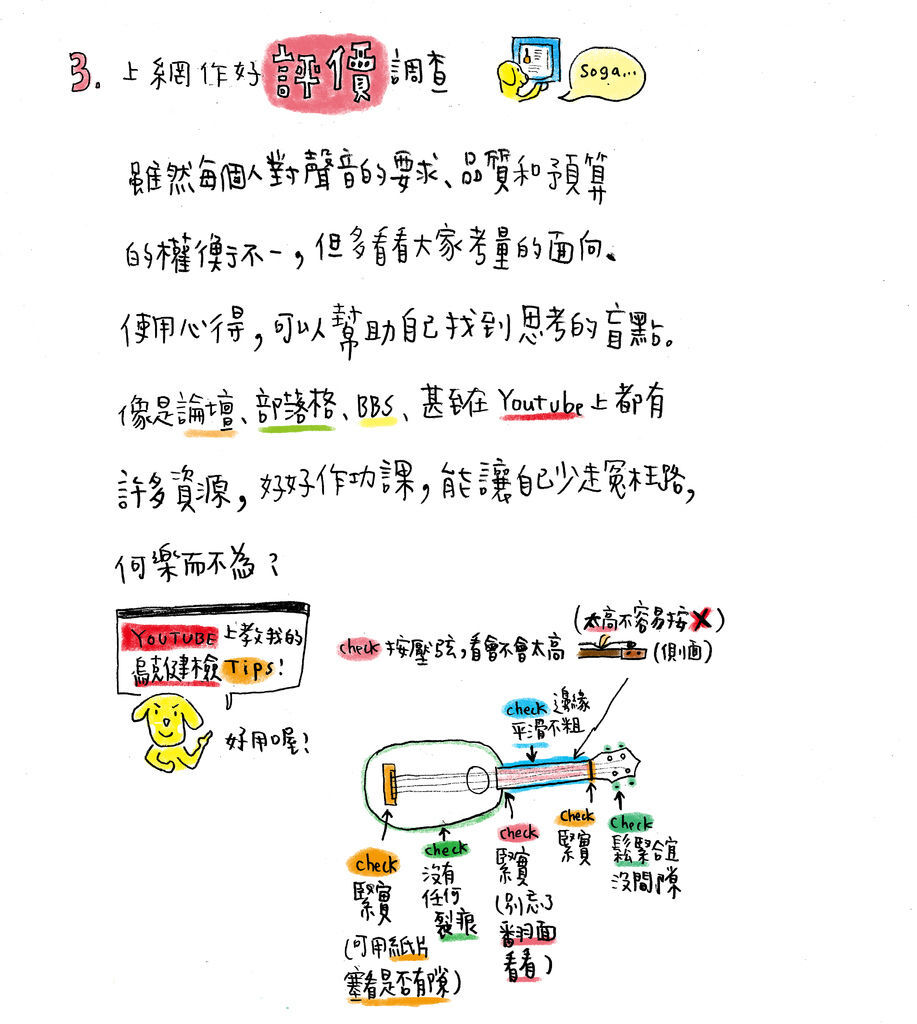 3. 上網作好評價調查
Soga...
雖然每個人對聲音的要求、品質和預算
的權衡不一，但多看看大家考量的面向、
使用心得，可以幫助自己找到思考的盲點。
像是論壇、部落格、BBS、甚至在 Youtube 上都有
許多資源，好好作功課，能讓自己少走冤枉路，
何樂而不為？
YOUTUBE 上教我的
烏克健檢 Tips!
好用喔？
check 按壓弦，看會不會太高
(太高不容易按 X)
(側面)
check 邊緣
平滑不粗
check
緊實
(可用紙片
塞看是否有隙)
check
沒有
任何
裂痕
check
緊實
(別忘了
翻面
看看)
check
緊實
check
鬆緊合宜
沒間隙